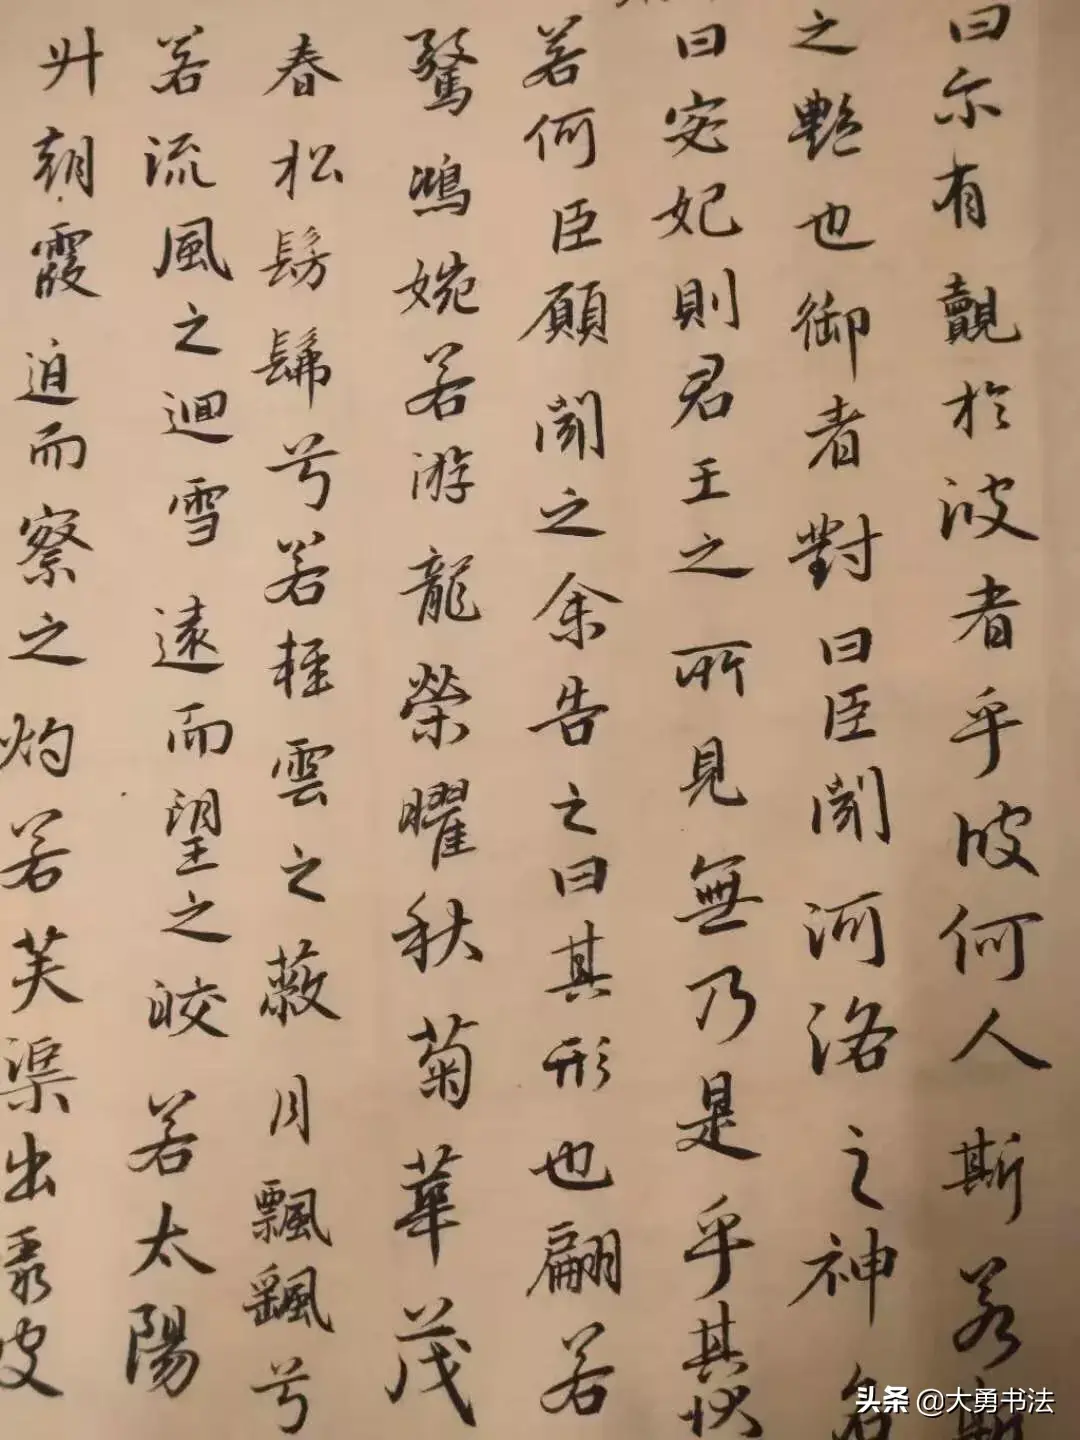 曰尓有覿於彼者乎彼何人斯若斯
之艷也御者對曰臣聞河洛之神名
曰宓妃則君王之所見無乃是乎其状
若何臣願聞之余告之曰其形也翩若
驚鴻婉若游龍榮曜秋菊華茂
春松髣髴兮若軽雲之蔽月飄颻兮
若流風之迴雪遠而望之皎若太陽
升朝霞迫而察之灼若芙渠出渌波
头条 @大勇书法